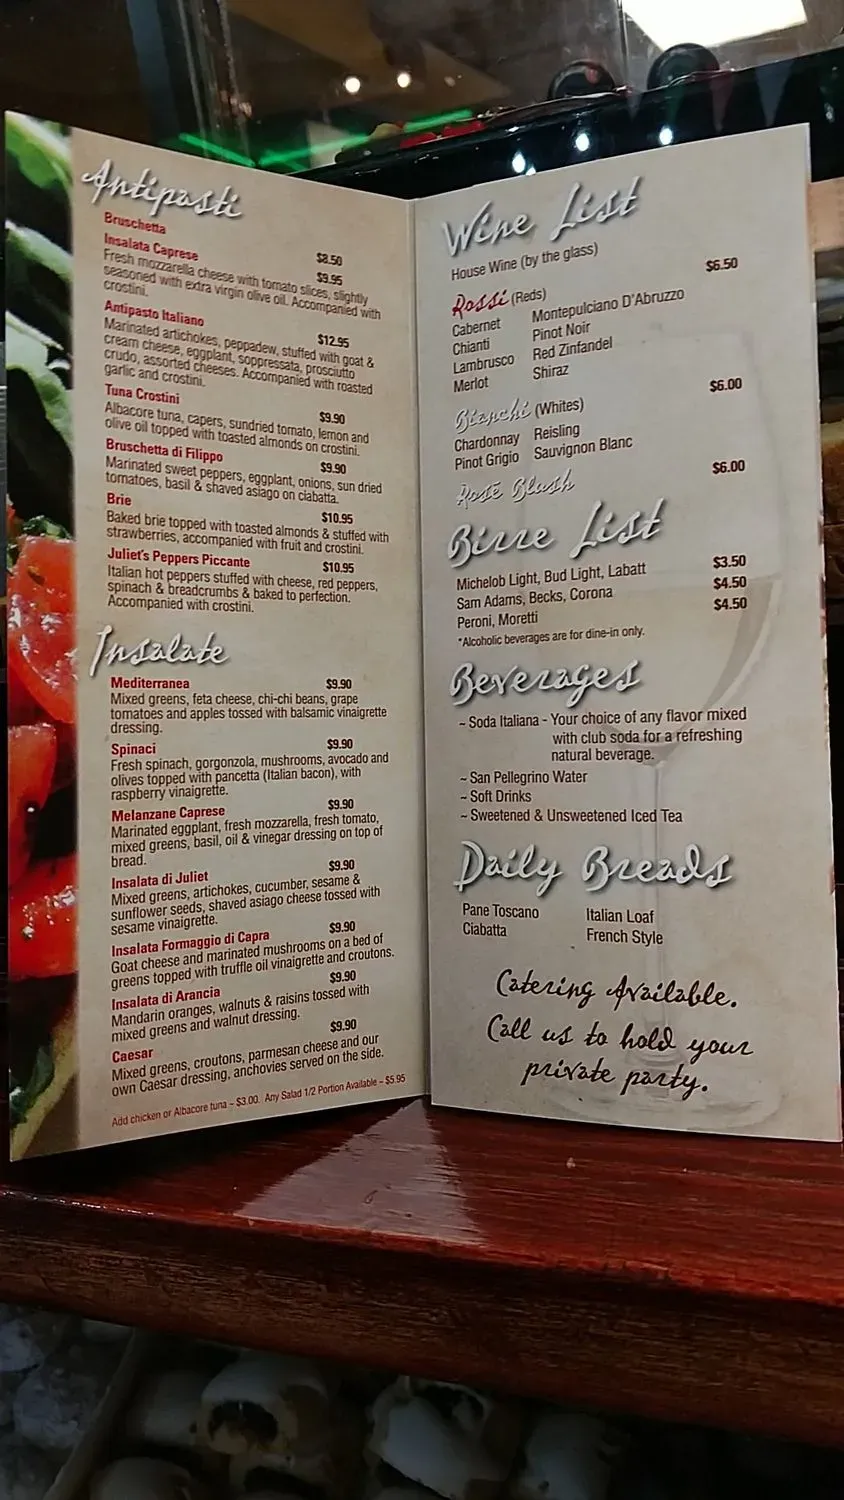 Antipasti
Bruschetta $8.50
Insalata Caprese $9.95
Fresh mozzarella cheese with tomato slices, slightly
seasoned with extra virgin olive oil. Accompanied with
crostini.
Antipasto Italiano $12.95
Marinated artichokes, peppadew, stuffed with goat &
cream cheese, eggplant, soppressata, prosciutto
crudo, assorted cheeses. Accompanied with roasted
garlic and crostini.
Tuna Crostini $9.90
Albacore tuna, capers, sundried tomato, lemon and
olive oil topped with toasted almonds on crostini.
Bruschetta di Filippo $9.90
Marinated sweet peppers, eggplant, onions, sun dried
tomatoes, basil & shaved asiago on ciabatta.
Brie $10.95
Baked brie topped with toasted almonds & stuffed with
strawberries, accompanied with fruit and crostini.
Juliet's Peppers Piccante $10.95
Italian hot peppers stuffed with cheese, red peppers,
spinach & breadcrumbs & baked to perfection.
Accompanied with crostini.
Insalate
Mediterranea $9.90
Mixed greens, feta cheese, chi-chi beans, grape
tomatoes and apples tossed with balsamic vinaigrette
dressing.
Spinaci $9.90
Fresh spinach, gorgonzola, mushrooms, avocado and
olives topped with pancetta (Italian bacon), with
raspberry vinaigrette.
Melanzane Caprese $9.90
Marinated eggplant, fresh mozzarella, fresh tomato,
mixed greens, basil, oil & vinegar dressing on top of
bread.
Insalata di Juliet $9.90
Mixed greens, artichokes, cucumber, sesame &
sunflower seeds, shaved asiago cheese tossed with
sesame vinaigrette.
Insalata Formaggio di Capra $9.90
Goat cheese and marinated mushrooms on a bed of
greens topped with truffle oil vinaigrette and croutons.
Insalata di Arancia $9.90
Mandarin oranges, walnuts & raisins tossed with
mixed greens and walnut dressing.
Caesar $9.90
Mixed greens, croutons, parmesan cheese and our
own Caesar dressing, anchovies served on the side.
Add chicken or Albacore tuna ~ $3.00. Any Salad 1/2 Portion Available ~ $5.95
Wine List
House Wine (by the glass)
Rossi (Reds) $6.50
Cabernet Montepulciano D'Abruzzo
Chianti Pinot Noir
Lambrusco Red Zinfandel
Merlot Shiraz
Bianchi (Whites) $6.00
Chardonnay Reisling
Pinot Grigio Sauvignon Blanc
Rosé Blush $6.00
Birre List
Michelob Light, Bud Light, Labatt $3.50
Sam Adams, Becks, Corona $4.50
Peroni, Moretti $4.50
*Alcoholic beverages are for dine-in only.
Beverages
~ Soda Italiana - Your choice of any flavor mixed
with club soda for a refreshing
natural beverage.
~ San Pellegrino Water
~ Soft Drinks
~ Sweetened & Unsweetened Iced Tea
Daily Breads
Pane Toscano Italian Loaf
Ciabatta French Style
Catering Available.
Call us to hold your
private party.